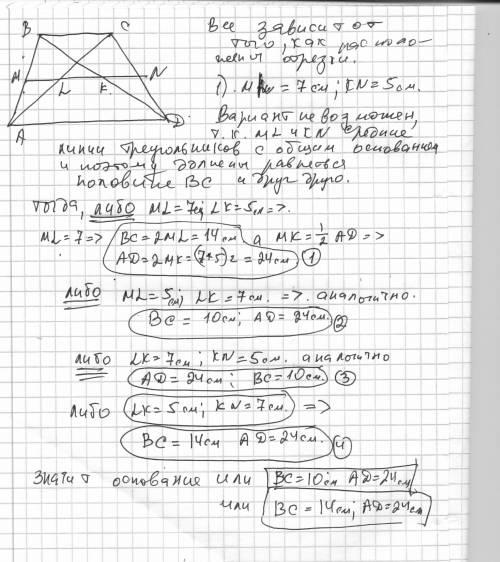 B C
M N
L K
A D
Все зависит от
того, как располо-
жены отрезки.
1). = 7 см; KN = 5 см.
Вариант невозможен,
т.к. ML и KN средние
линии треугольников с общим основанием
и поэтому должны равняться
половине BC и друг другу.
Тогда, либо ML = 7 см; LK = 5 см =>.
ML = 7 => BC = 2ML = 14 см а MK = 1/2 AD =>
AD = 2MK = (7+5)2 = 24 см 1
либо ML = 5 см; LK = 7 см. => аналогично.
BC = 10 см; AD = 24 см. 2
либо LK = 7 см; KN = 5 см. аналогично
AD = 24 см; BC = 10 см. 3
либо LK = 5 см; KN = 7 см. =>
BC = 14 см AD = 24 см. 4
Значит основание или BC = 10 см AD = 24 см
или BC = 14 см; AD = 24 см